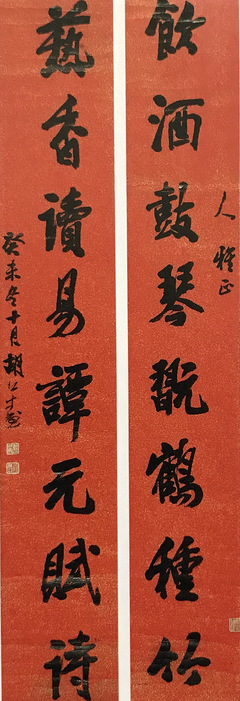 飲酒鼓琴翫鶴種竹
人雅正
爇香讀易譚元賦詩
癸未冬十月胡